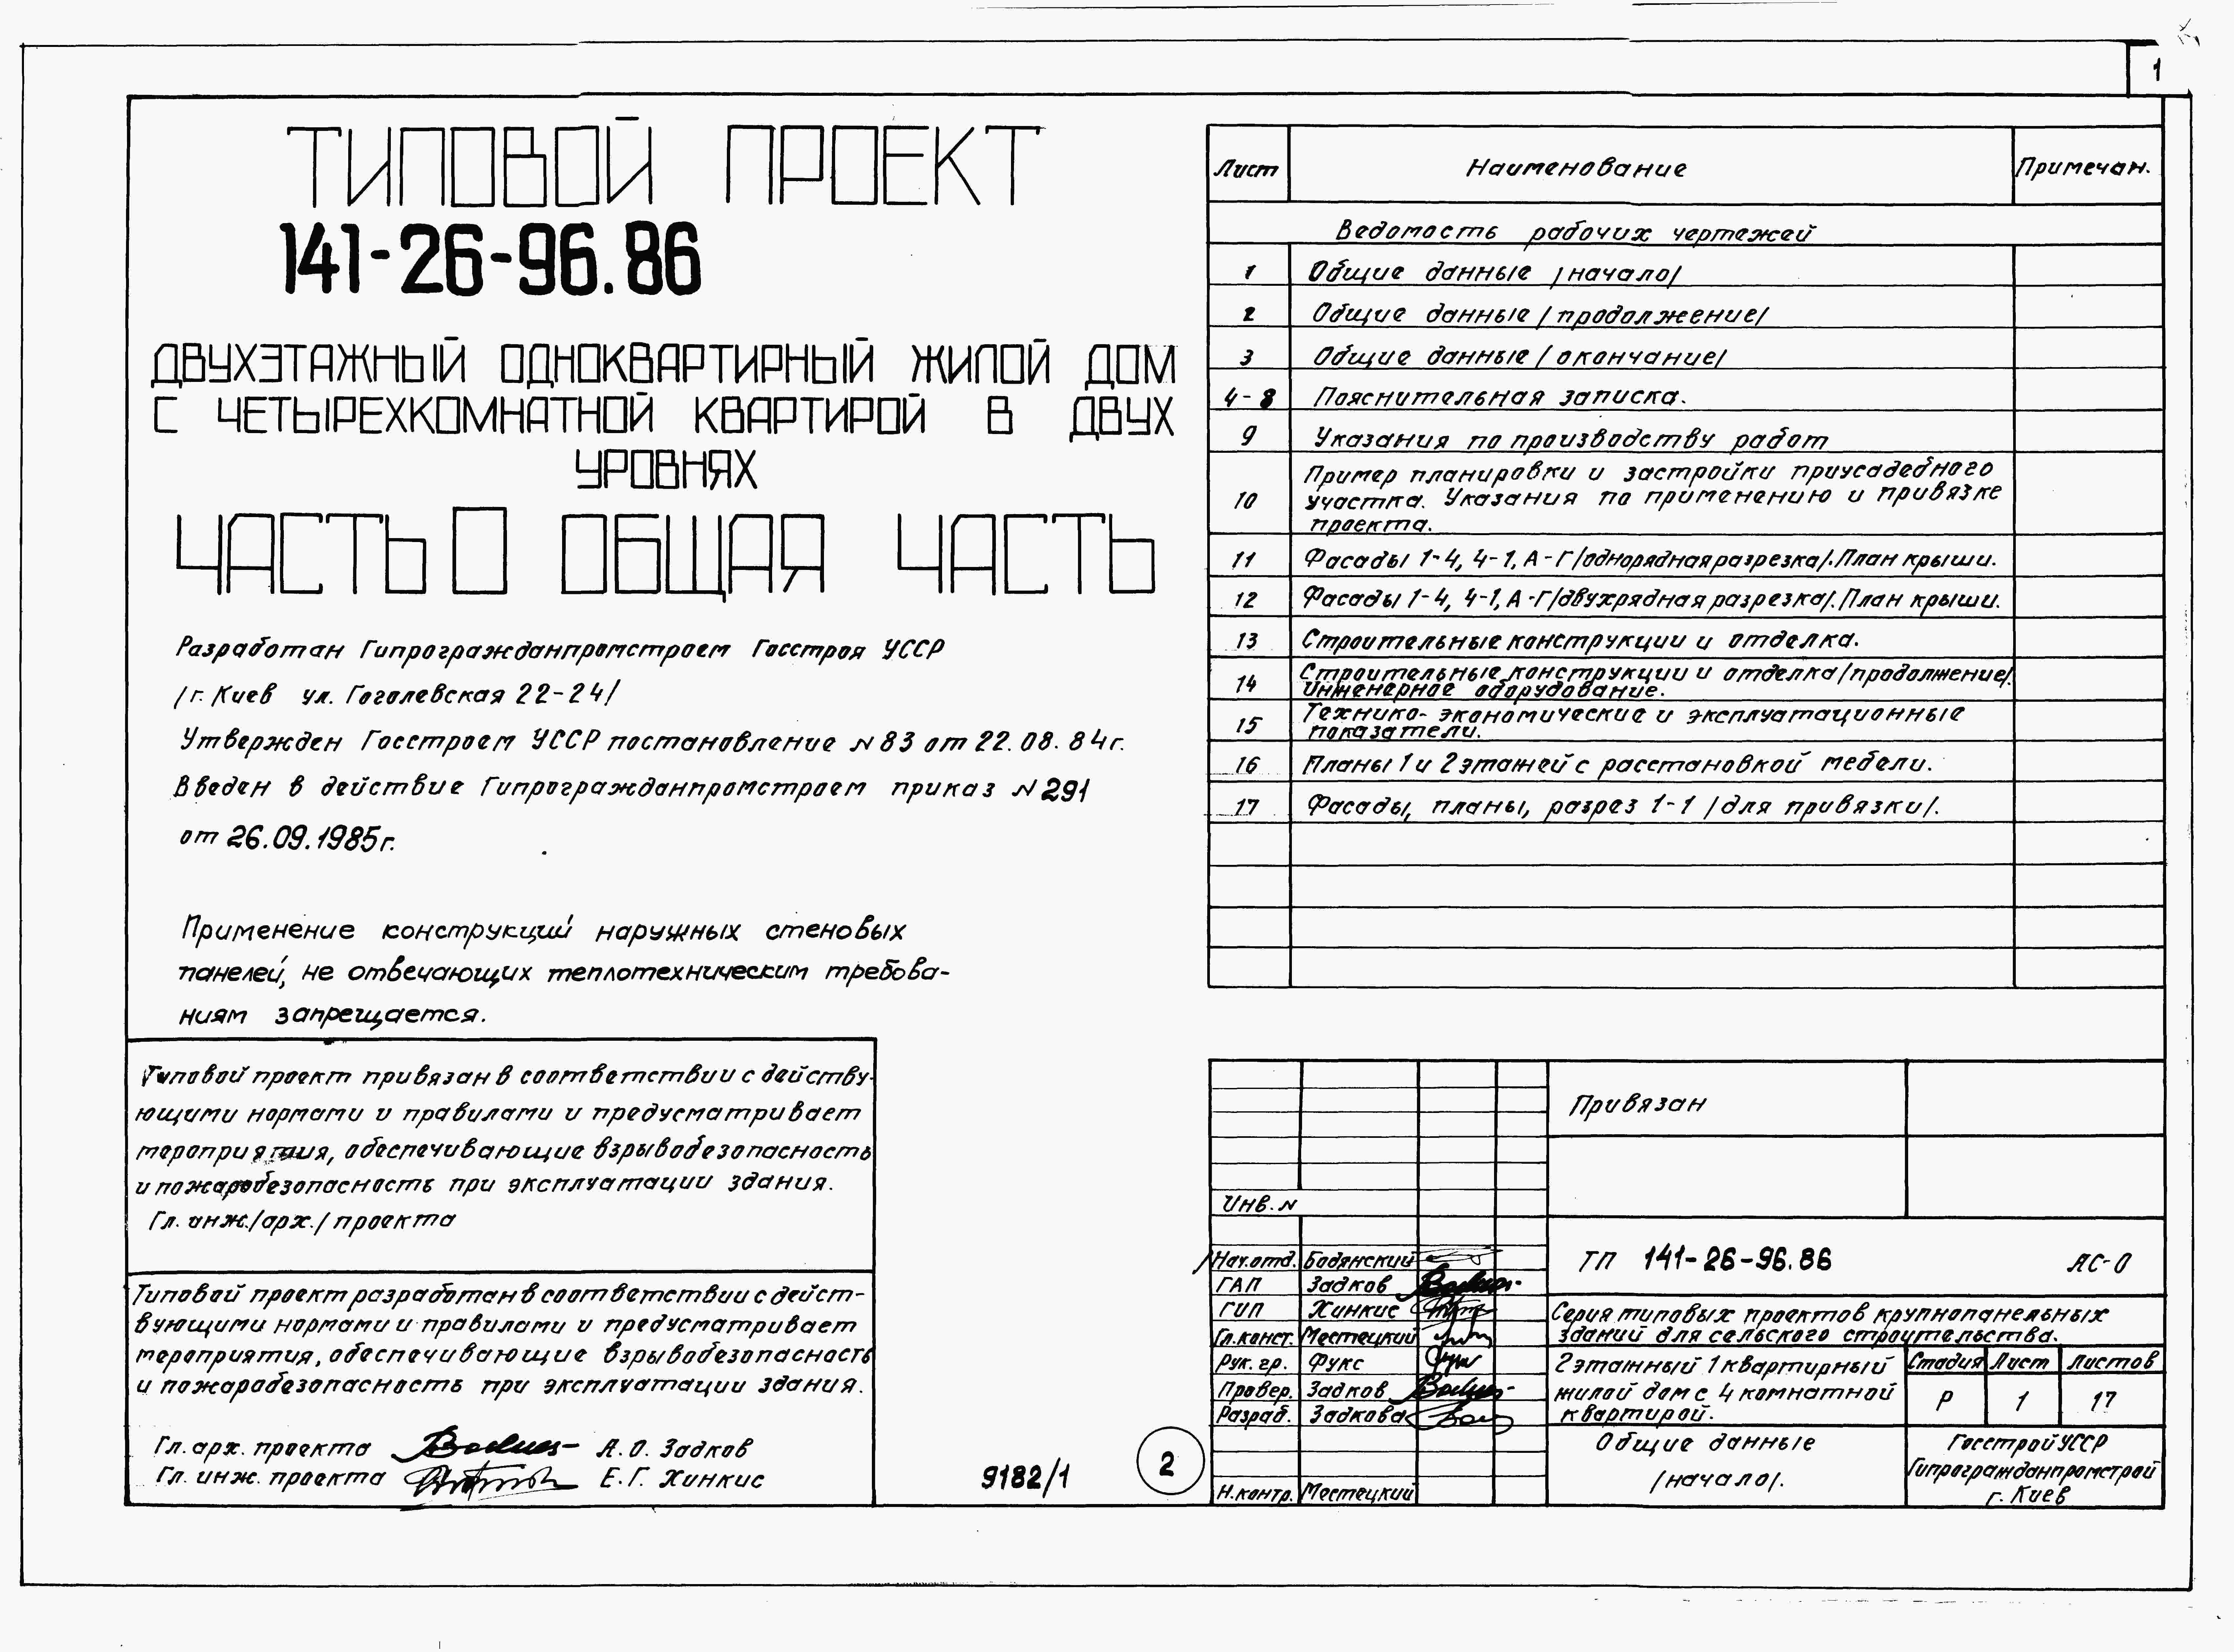 1
ТИПОВОЙ ПРОЕКТ
141-26-96.86
ДВУХЭТАЖНЫЙ ОДНОКВАРТИРНЫЙ ЖИЛОЙ ДОМ
С ЧЕТЫРЕХКОМНАТНОЙ КВАРТИРОЙ В ДВУХ
УРОВНЯХ
ЧАСТЬ 0 ОБЩАЯ ЧАСТЬ
Разработан Гипрогражданпромстроем Госстроя УССР
/г. Киев ул. Гоголевская 22-24/
Утвержден Госстроем УССР постановление N 83 от 22.08.84г.
Введен в действие Гипрогражданпромстроем приказ N 291
от 26.09.1985г.
Применение конструкций наружных стеновых
панелей, не отвечающих теплотехническим требова-
ниям запрещается.
Типовой проект привязан в соответствии с действу-
ющими нормами и правилами и предусматривает
мероприятия, обеспечивающие взрывобезопасность
и пожаробезопасность при эксплуатации здания.
Гл. инж./арх./ проекта
Типовой проект разработан в соответствии с дейст-
вующими нормами и правилами и предусматривает
мероприятия, обеспечивающие взрывобезопасность
и пожаробезопасность при эксплуатации здания.
Гл. арх. проекта А. О. Задков
Гл. инж. проекта Е. Г. Хинкис
9182/1
2
Лист Наименование Примечан.
Ведомость рабочих чертежей
1 Общие данные /начало/
2 Общие данные /продолжение/
3 Общие данные /окончание/
4-8 Пояснительная записка.
9 Указания по производству работ
Пример планировки и застройки приусадебного
10 участка. Указания по применению и привязке
проекта.
11 Фасады 1-4, 4-1, А-Г /однорядная разрезка/. План крыши.
12 Фасады 1-4, 4-1, А-Г /двухрядная разрезка/. План крыши.
13 Строительные конструкции и отделка.
14 Строительные конструкции и отделка /продолжение/.
Инженерное оборудование.
15 Технико-экономические и эксплуатационные
показатели.
16 Планы 1 и 2 этажей с расстановкой мебели.
17 Фасады, планы, разрез 1-1 /для привязки/.
Привязан
Инв. N
Нач.отд. Бодянский
ГАП Задков
ГИП Хинкис
Гл.конст. Местецкий
Рук. гр. Фукс
Провер. Задков
Разраб. Задкова
Н.контр. Местецкий
ТП 141-26-96.86 АС-0
Серия типовых проектов крупнопанельных
зданий для сельского строительства.
2 этажный 1 квартирный
жилой дом с 4 комнатной
квартирой.
Стадия Лист Листов
Р 1 17
Общие данные
/начало/.
Госстрой УССР
Гипрогражданпромстрой
г. Киев